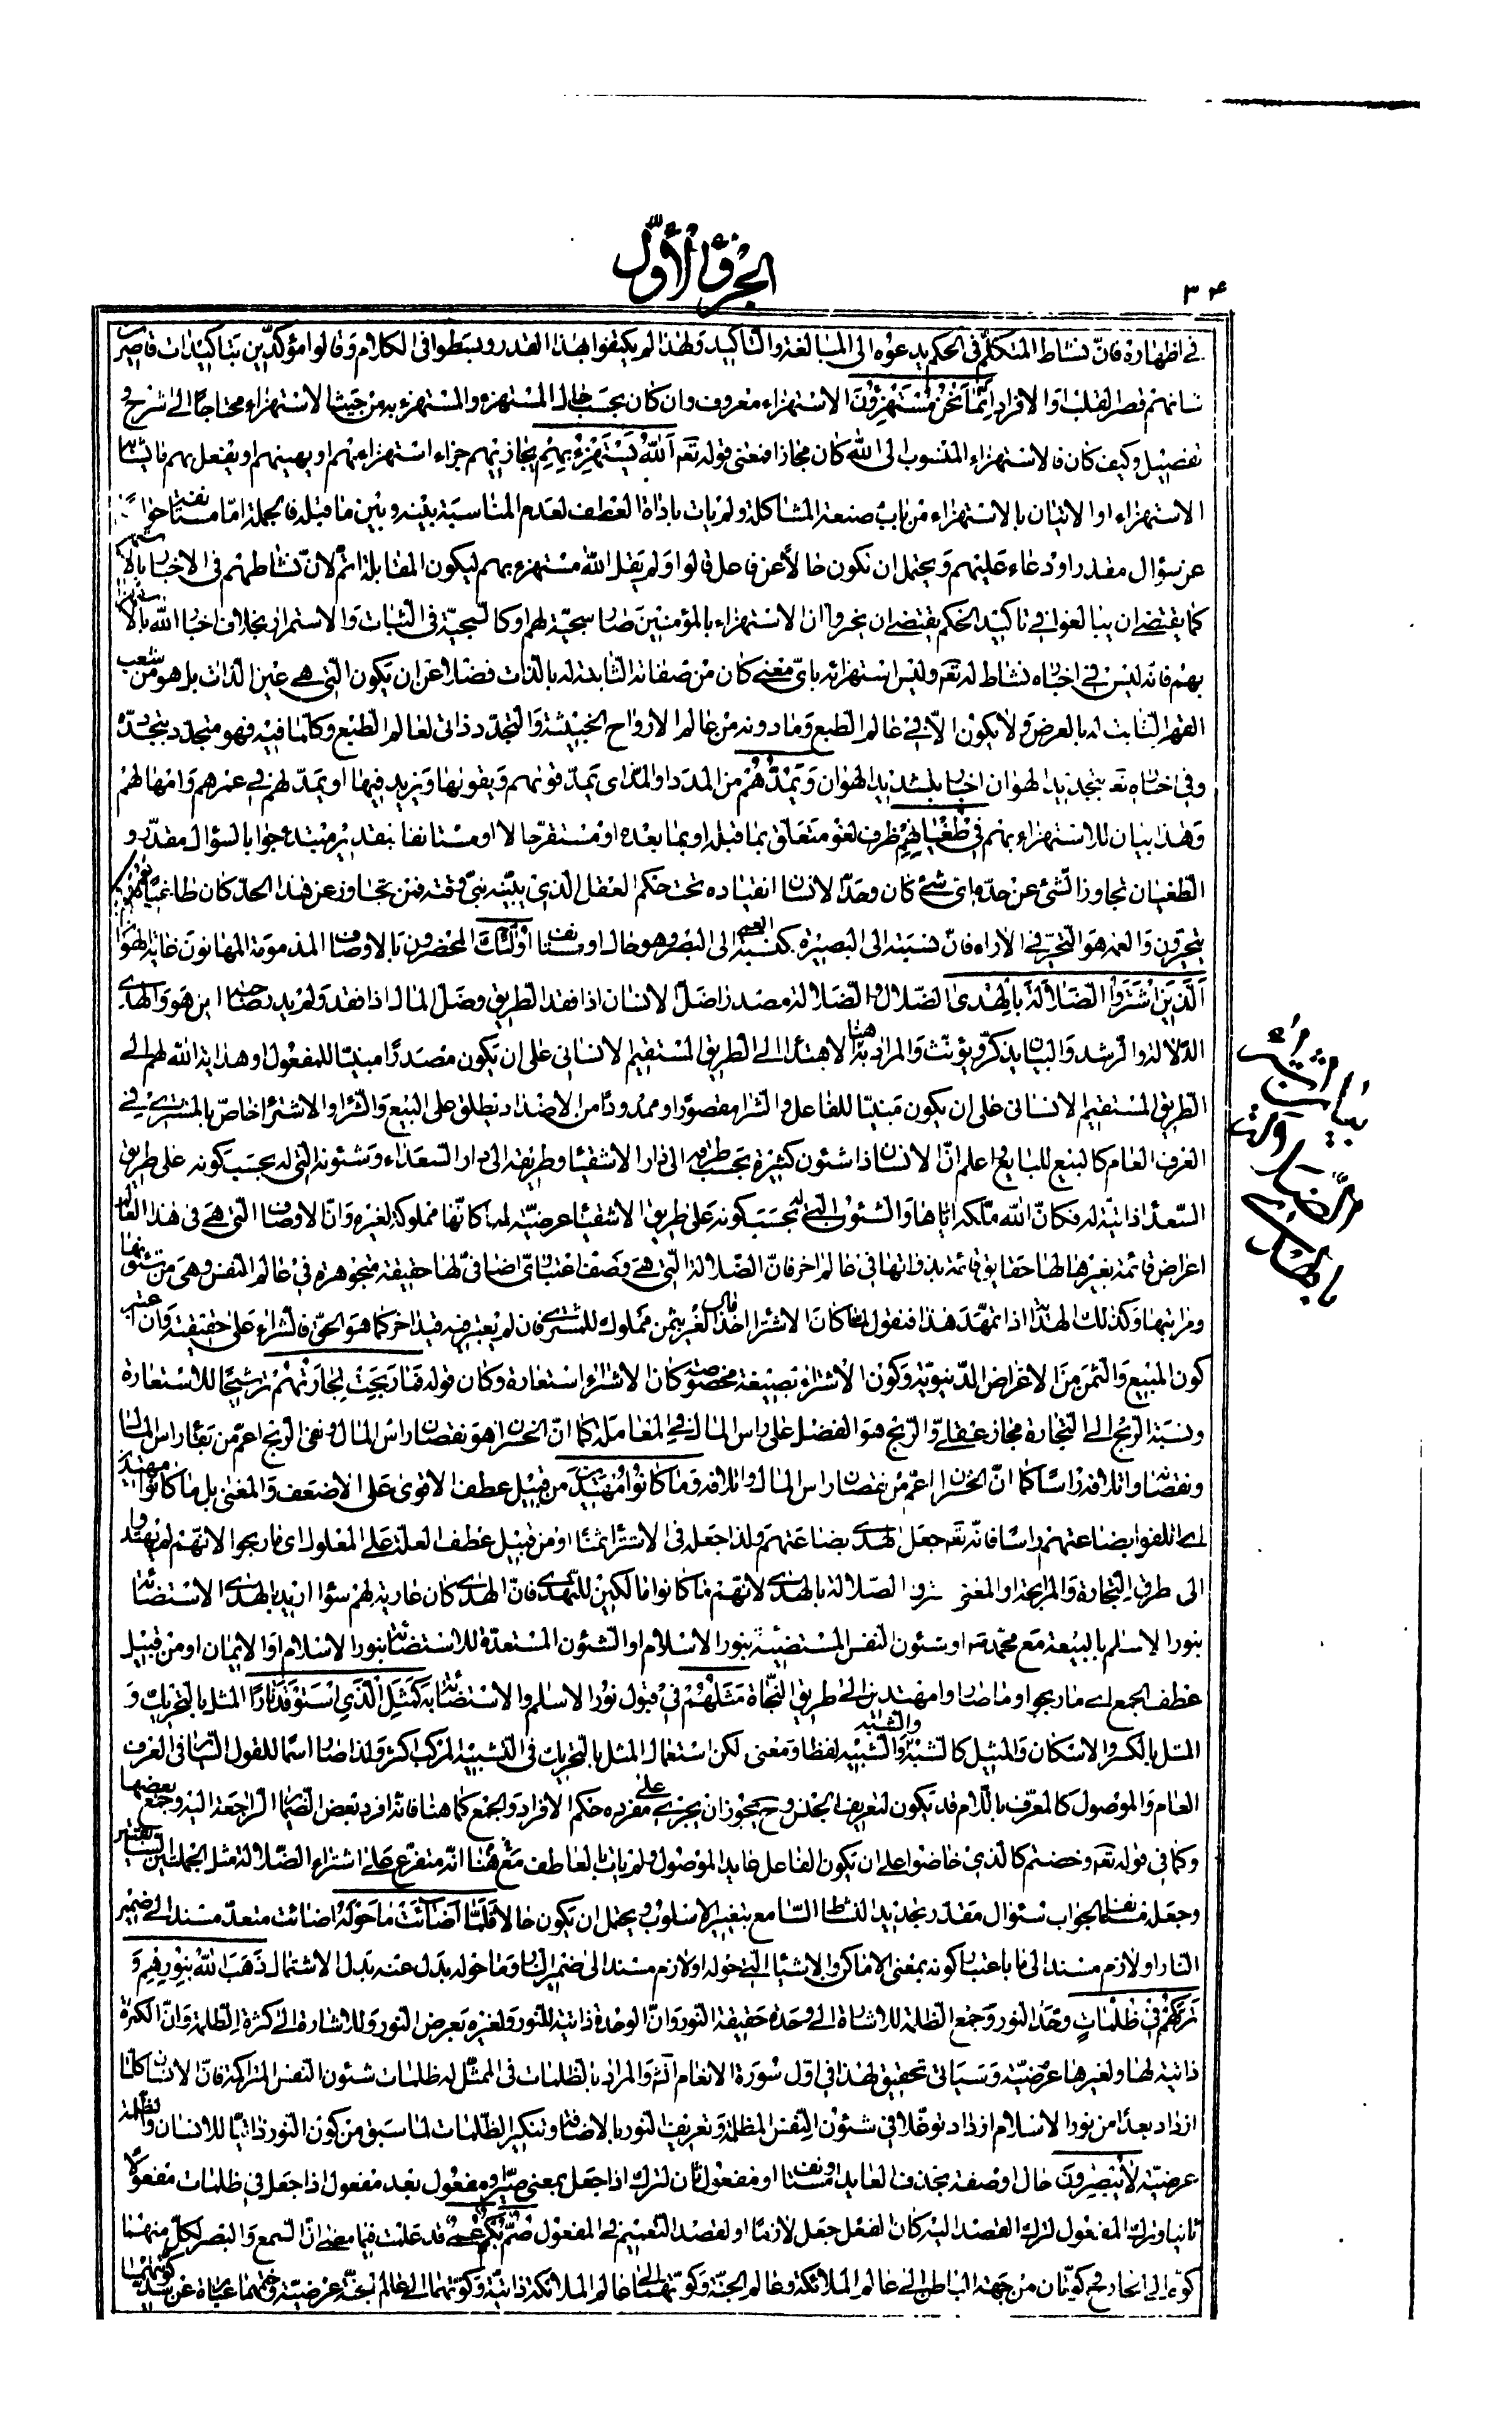 الجزء الأوّل
۳۴
فى اظهاره فانّ نشاط المتكلّم فى الحكم يدعوه الى المبالغة والتّاكيد ولهذا لم يكتفوا بهذا القدر وبسطوا فى الكلام وقالوا مؤكّدين بتاكيدات قاصرين
شانهم قصر القلب او الافراد إِنَّمَا نَحْنُ مُسْتَهْزِؤُنَ الاستهزاء معروف وان كان بحسب حال المستهزء والمستهزء به من حيث الاستهزاء محتاجًا الى شرح و
تفصيل وكيف كان فالاستهزاء المنسوب الى الله كان مجازا فمعنى قوله تعم اَللّٰهُ يَسْتَهْزِئُ بِهِمْ يجازيهم جزاء استهزاءهم او يهينهم او يفعل بهم فايشابه
الاستهزاء او الاتيان بالاستهزاء من باب صنعة المشاكلة ولم يات باداة العطف لعدم المناسبة بينه وبين ما قبله فالجملة امّا مستانفة جوابًا
عن سؤال مقدر او دعاء عليهم ويحتمل ان تكون حالاً عن فاعل قالوا ولم يقل الله مستهزء بهم ليكون المقابلة اتمّ لانّ نشاطهم فى الاخبار بالاستهزاء
كما يقتضى ان يبالغوا فى تاكيد الحكم يقتضى ان يخبروا ان الاستهزاء بالمؤمنين صار سجيّة لهم او كالسجيّة فى الثبات والاستمرار بخلاف اخبار الله بالاستهزاء
بهم فانه ليس فى اخباره نشاط له تعم وليس استهزائه باىّ معنى كان من صفاته الثابتة له بالذات فضلا عن ان يكون الّتى هى عين الذات بل هو من شعب
القهر الثابت له بالعرض ولا يكون الّا فى عالم الطبع وما دونه من عالم الارواح الخبيثة والتجدّد ذاتى لعالم الطبع وكلما فيه فهو متجدّد بتجدّده
وفى اخباره تعم بتجديد الهوان اخبار بتشديد الهوان وَيَمُدُّهُمْ من المدد او المدّ اى يمدّ قوتهم ويقويها ويزيد فيها او يمدّ لهم فى عمرهم وامهالهم
وهذا بيان للاستهزاء بهم فِى طُغْيَانِهِمْ ظرف لغو متعلق بما قبله او بما بعده او مستقر حالا او مستانفا بتقدير مبتدء جوابا لسؤال مقدّر و
الطغيان تجاوز الشّئ عن حدّه اىّ شئ كان وحدّ الانسان انقياده تحت حكم العقل الّذى يبيّنه نبىّ وقته فمن تجاوز عن هذا الحدّ كان طاغيًا يَعْمَهُونَ
يتحيّرون والعمه هو التحيّر فى الآراء فانّ نسبته الى البصيرة كنسبة العمى الى البصر وهو حال او مستانف أُولٰئِكَ المحضرون بالاوصاف المذمومة المهانون غاية الهوان
اَلَّذِينَ اشْتَرَوُا الضَّلَالَةَ بِالْهُدَى الضّلال والضّلالة مصدر اضلّ الانسان اذا فقد الطريق وضلّ المال اذا فقد ولم يدر صاحبه اين هو والهدى
الدّلالة والرشد والبيان يذكّر ويؤنّث والمراد به هنا الاهتداء الى الطريق المستقيم الانسانى على ان يكون مصدرًا مبنيّا للمفعول او هداية الله لهم الى
الطريق المستقيم الانسانى على ان يكون مبنيّا للفاعل والشرا مقصورًا وممدودًا من الاضداد يطلق على البيع والشراء والاشتراء خاصّ بالمشترى فى
العرف العام كالبيع للبايع واعلم انّ الانسان ذا شئون كثيرة بحسب طريقه الى دار الاشقياء وطريقه الى دار السّعداء وشئونه الّتى له بحسب كونه على طريق
السّعداء ذاتية له فكانّ الله ملّكه ايّاها والشّئون الّتى له بحسب كونه على طريق الاشقياء عرضيّة له كانّها مملوكة لغيره وانّ الاوصاف الّتى هى فى هذا العالم
اعراض قائمة بغيرها لها حقايق قائمة بذواتها فى عالم اخر فانّ الضّلالة الّتى هى وصف اعتبارىّ اضافىّ لها حقيقة متجوهرة فى عالم النفس وهى من شئونها
ومراتبها وكذلك الهداية اذا تمهّد هذا فنقول لمّا كان الاشتراء اخذ مال الغير بثمن مملوك للمشترى فان لم يعتبر فيه قيد اخر كما هو الحقّ فالشراء على حقيقته وان اعتبر
كون المبيع والثمن من الاعراض الدّنيويّة وكون الاشتراء بصيغة مخصوصة كان الاشتراء استعارة وكان قوله فَمَا رَبِحَتْ تِجَارَتُهُمْ ترشيحًا للاستعارة
ونسبة الربح الى التجارة مجاز عقلىّ والربح هو الفضل على راس المال فى المعاملة كما انّ الخسران هو نقصان راس المال ونفى الربح اعمّ من بقاء راس المال
ونقصانه واتلافه راسًا كما انّ الخسران اعمّ من نقصان راس المال واتلافه وَمَا كَانُوا مُهْتَدِينَ من قبيل عطف الاقوى على الاضعف والمعنى بل ما كانوا مهتدين
اى اتلفوا بضاعتهم راسًا فانّه تعم جعل الهدى بضاعتهم ولذا جعله فى الاشتراء ثمنًا او من قبيل عطف العلّة على المعلول اى ما ربحوا لانّهم لم يهتدوا
الى طرق التجارة والمرابحة او المعنى الضّلالة بالهدى لانّهم ما كانوا مالكين للهدى فانّ الهدى كان عارية لهم سواء اريد بالهدى الاستضائة
بنور الاسلام بالبيعة مع محمّد ص او شئون النفس المستضيئة بنور الاسلام او الشئون المستعدّة للاستضائة بنور الاسلام او الايمان او من قبيل
عطف الجمع اى ما ربحوا وما صاروا مهتدين الى طريق النّجاة مَثَلُهُمْ فى قبول نور الاسلام والاستضائة به كَمَثَلِ الَّذِى اسْتَوْقَدَ نَارًا المثل بالتحريك و
المثل بالكسر والاسكان والمثيل كالشبه والشبه والشبيه لفظا ومعنى لكن استعمال المثل بالتحريك فى التشبيه المركب اكثر ولذا صار اسمًا للقول السّائر فى العرف
العام والموصول كالمعرّف باللّام قد يكون لتعريف الجنس وح يجوز ان يجرى على مفرده حكم الافراد والجمع كما هنا فانّه افرد بعض الضّمائر الراجعة اليه وجمع بعضها
وكما فى قوله تعم وخضتم كالّذى خاضوا على ان يكون الفاعل عايد الموصول ولم يات بالعاطف مع انّه متفرّع على اشتراء الضّلالة مثل الجملتين السّابقتين
وجعله مستانفا لجواب سؤال مقدّر تجديدا لنشاط السّامع بتغيير الاسلوب ويحتمل ان يكون حالا فَلَمَّا أَضَاءَتْ مَا حَوْلَهُ اضائت متعدّ مسند الى ضمير
النار او لازم مسند الى ما باعتبار كونه بمعنى الاماكن والاشياء الّتى حوله او لازم مسند الى ضمير النار وما حوله بدل عنه بدل الاشتمال ذَهَبَ اللّٰهُ بِنُورِهِمْ وَ
تَرَكَهُمْ فِى ظُلُمَاتٍ وحّد النور وجمع الظلمة للاشارة الى وحدة حقيقة النور وانّ الوحدة ذاتية للنور ولغيره بعرض النور وللاشارة الى كثرة الظلمة وانّ الكثرة
ذاتية لها ولغيرها عرضيّة وسياتى تحقيق لهذا فى اوّل سورة الانعام انشه والمراد بالظلمات فى الممثّل له ظلمات شئون النفس المتراكمة فانّ الانسان كلّما
ازداد بعدًا من نور الاسلام ازداد توغّلا فى شئون النفس المظلمة وتعريف النور بالاضافة وتنكير الظّلمات لما سبق من كون النور ذاتيّا للانسان والظلمة
عرضيّة لَا يُبْصِرُونَ حال او صفة بحذف العايد او مستانف او مفعول ثان لترك اذا جعل بمعنى صيّر او مفعول بعد مفعول اذا جعل فى ظلمات مفعولًا
ثانيا وترك المفعول لترك القصد اليه كان الفعل جعل لازمًا او لقصد التعميم فى المفعول صُمٌّ بُكْمٌ عُمْىٌ قد علمت فيما مضى انّ السّمع والبصر لكلّ منهما
كوّة الى الخارج وكوّتان من جهة الباطن الى عالم الملائكة وعالم الجنّة وكوّتهما الى عالم الملائكة ذاتيّة وكوّتهما الى عالم الجنّة عرضيّة وصممهما عبارة عن سدّ كوّتهما
بيان اشتراء
الضّلالة
بالهدى